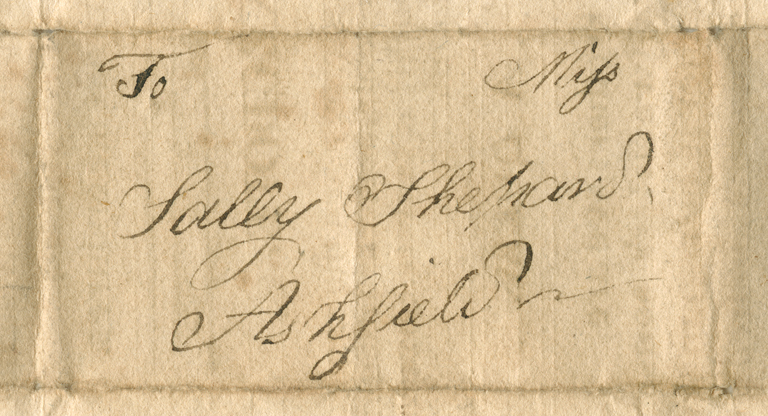 To Miss
Sally Shepard
Ashfield